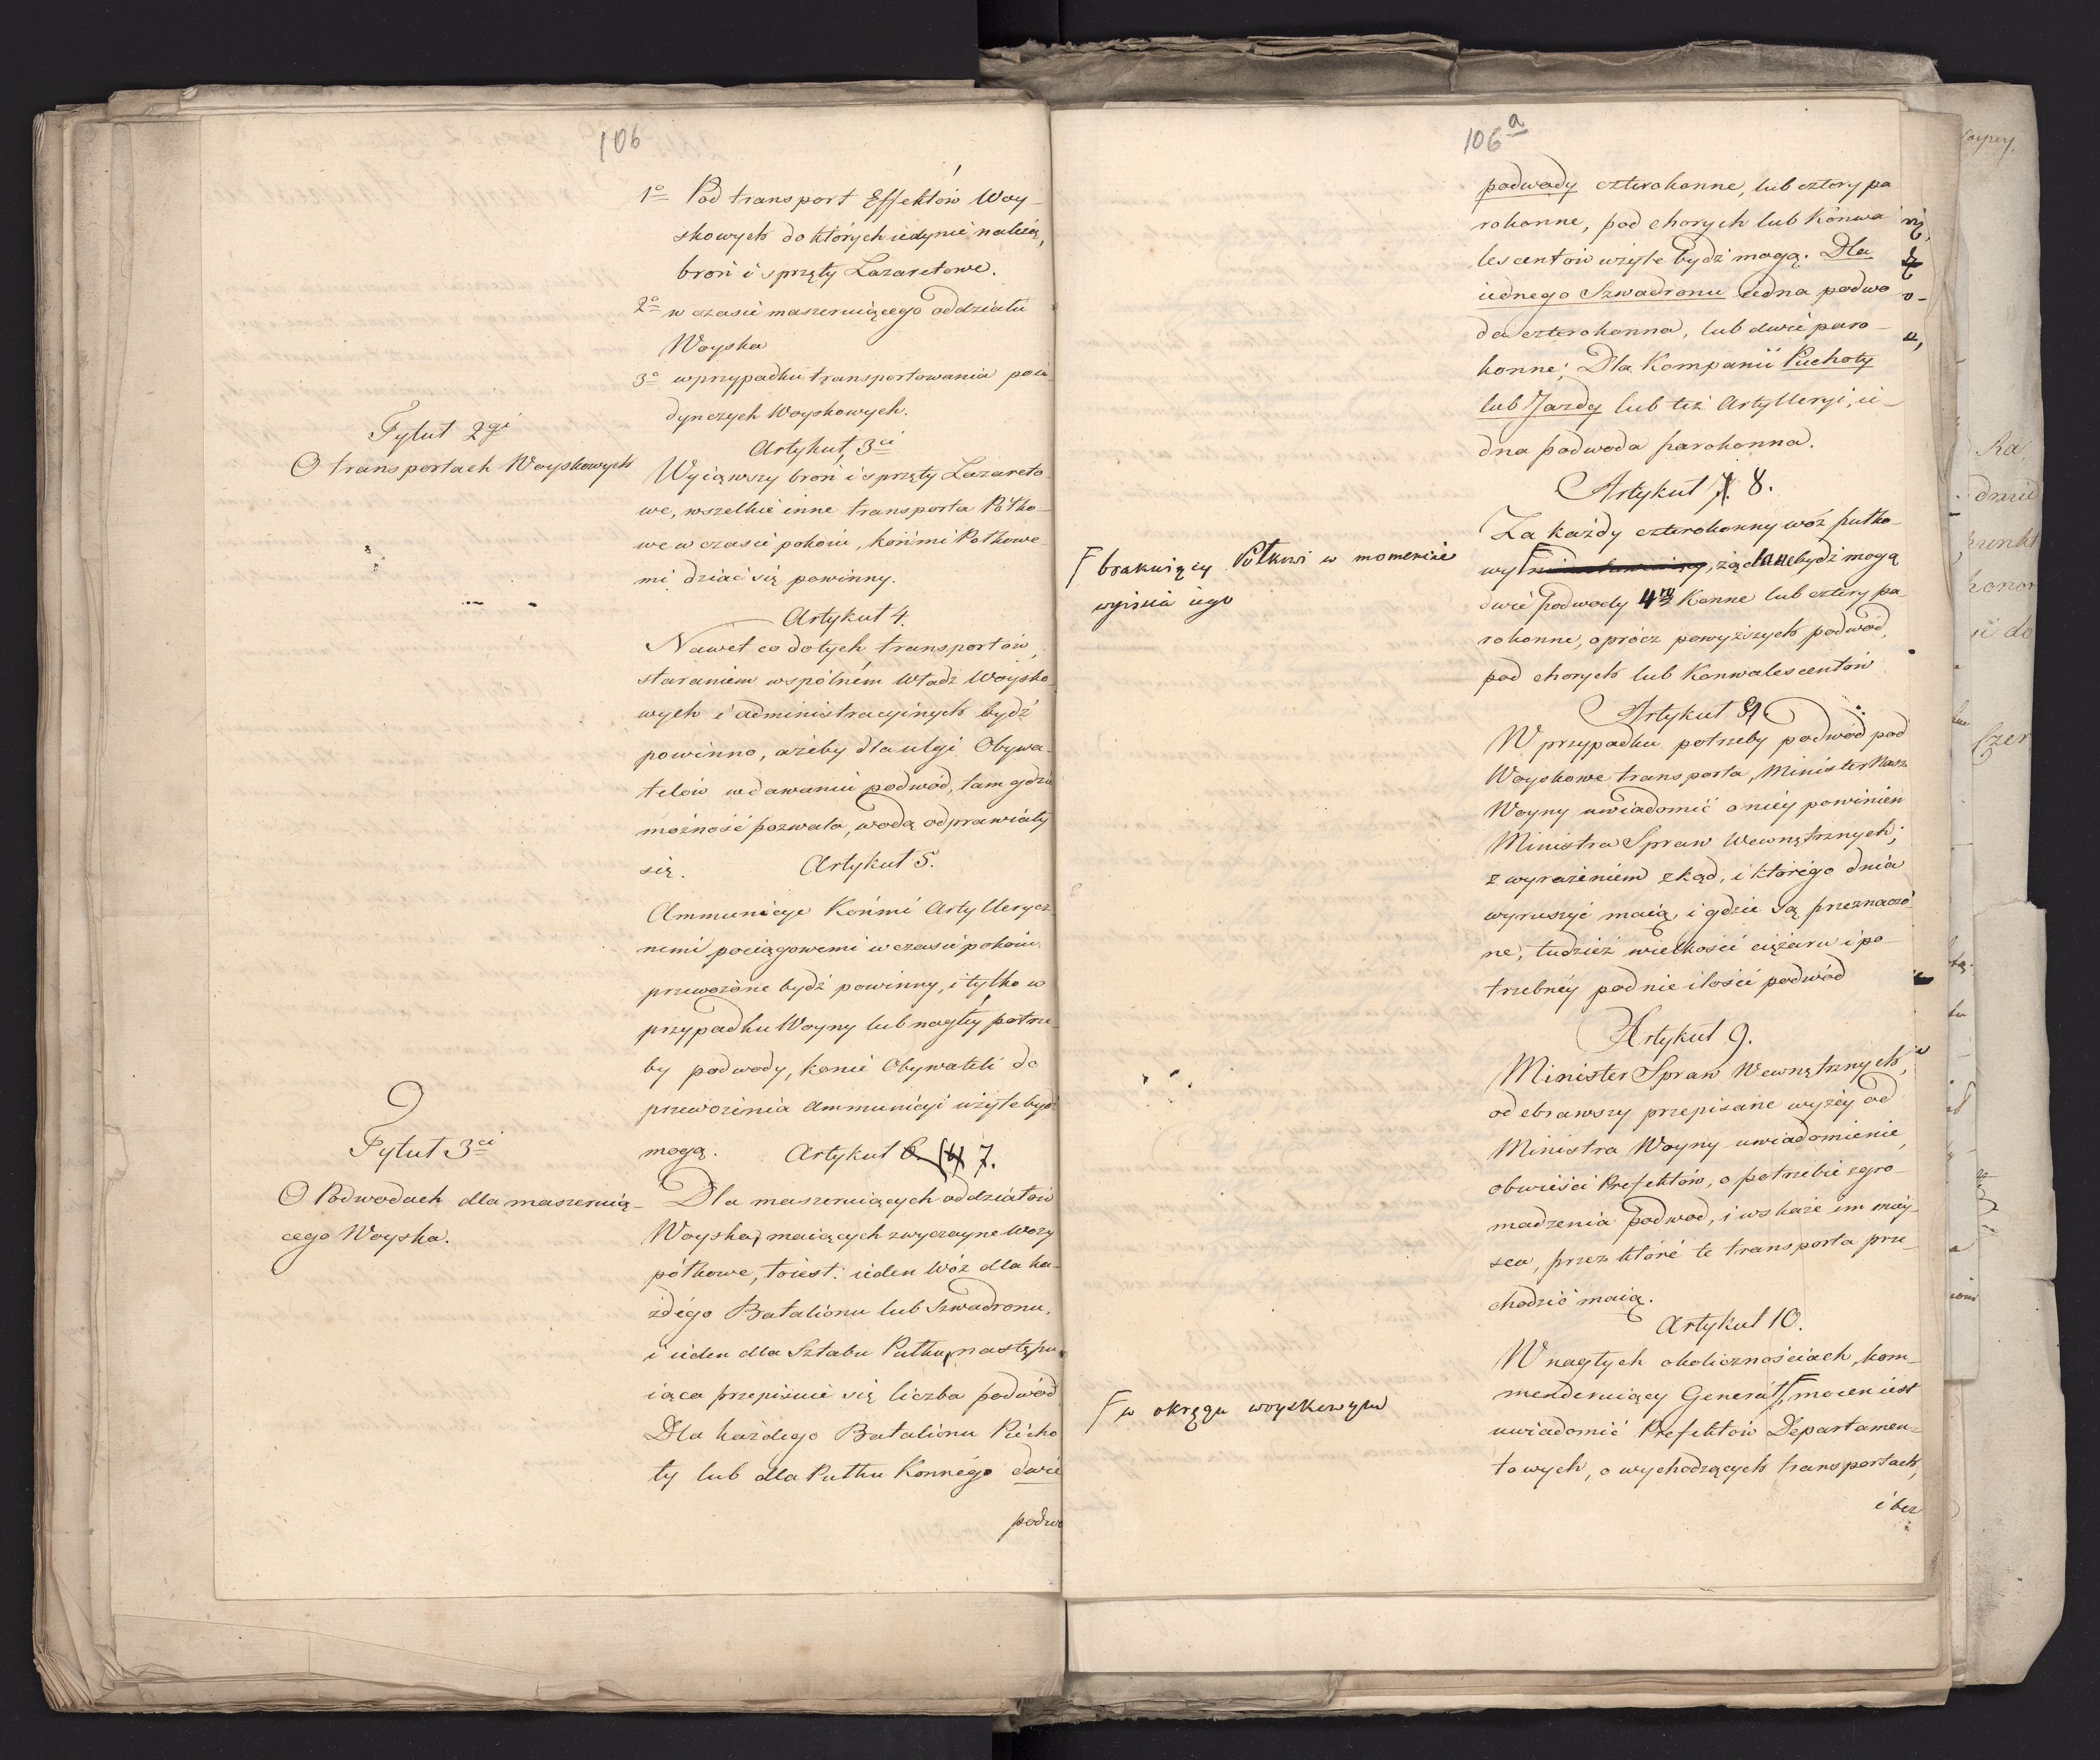 106
1o Pod transport Effektów Woy-
skowych do których iedynie należą,
broń i sprzęty Lazaretowe.
2o w czasie maszeruiącego oddziału
Woyska
3o w przypadku transportowania poie
dynczych Woyskowych.
Tytuł 2gi
O transportach Woyskowych
Artykuł 3ci
Wyiąwszy broń i sprzęty Lazareto
we, wszelkie inne transporta Półko-
we w czasie pokoiu, końmi Połkowe-
mi dziać się powinny.
Artykuł 4.
Nawet co do tych transportów,
staraniem wspólném Władz Woysko
wych i administracyinych bydź
powinno, ażeby dla ulgi Obywa-
telów w dawaniu podwód, tam gdzie
możność pozwala, wodą odprawiały
się.
Artykuł 5.
Ammunicye Końmi Artyllerycz-
nemi pociągowemi w czasie pokoiu
przewożone bydź powinny, i tylko w
przypadku Woyny lub nagłéy potrze-
by podwody, konie Obywateli do
przewożenia Ammunicyi użyte bydź
mogą.
Artykuł 6. 7.
Tytuł 3ci
O Podwodach dla maszeruią-
cego Woyska.
Dla maszeruiących oddziałów
Woyska, maiących zwyczayne Wozy
półkowe, to iest: ieden Wóz dla ka-
żdégo Batalionu lub Szwadronu,
i ieden dla Sztabu Pułku, nastąpu
iąca przepisuie się liczba podwód
Dla każdego Batalionu Piécho
ty lub dla Pułku Konnégo dwie
podwo
106a
podwody czterokonne, lub cztery pa
rokonne, pod chorych lub Konwa
lescentów użyte bydź mogą. Dla
iednego Szwadronu iedna podwo
da czterokonna, lub dwie paro-
konne; Dla Kompanii Piechoty
lub Jazdy lub też Artylleryi, ie-
dna podwoda parokonna.
Artykuł 7. 8.
Za każdy czterokonny wóz pułko-
wy, żądane bydź mogą
dwie podwody 4ro Konne lub cztery pa-
rokonne, oprócz powyższych podwód,
pod chorych lub Konwalescentów
brakuiący Pułkowi w momencie
wyiścia iego
Artykuł
W przypadku potrzeby podwód pod
Woyskowe transporta, Minister Nasz
Woyny uwiadomić o niéy powinien
Ministra Spraw Wewnętrznych;
z wyrażeniem zkąd, i którégo dnia
wyruszyć maią, i gdzie są przeznaczó
ne, tudzież wielkości ciężaru i po-
trzebnéy pod nie ilości podwód
Artykuł 9.
Minister Spraw Wewnętrznych,
odebrawszy przepisane wyżéy od
Ministra Woyny uwiadomienie,
obwieści Prefektów, o potrzebie zgro-
madzenia podwod, i wskaże im miéy-
sca, przez któré te transporta prze-
chodzić maią.
Artykuł 10.
W nagłych okolicznościach, kom-
menderuiący Generał, mocen iest
uwiadomić Prefektów Departamen-
towych, o wychodzących transportach,
w okręgu woyskowym
i bez